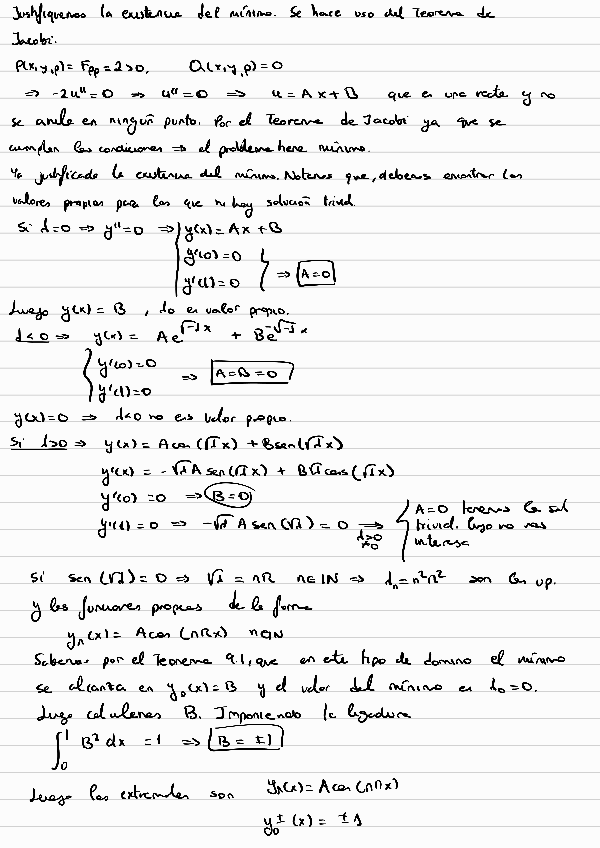 Justifiquemos la existencia del mínimo. Se hace uso del Teorema de
Jacobi.
P(x,y,p) = Fpp = 2 > 0, Q(x,y,p) = 0
⇒ -2u'' = 0 ⇒ u'' = 0 ⇒ u = Ax + B que es una recta y no
se anula en ningún punto. Por el Teorema de Jacobi ya que se
cumplen las condiciones ⇒ el problema tiene mínimo.
Ya justificado la existencia del mínimo. Notemos que, debemos encontrar los
valores propios para los que no hay solución trivial.
Si λ=0 ⇒ y''=0 ⇒ y(x) = Ax + B
y'(0) = 0
y'(1) = 0 ⇒ A=0
Luego y(x) = B, λ0 es valor propio.
λ<0 ⇒ y(x) = Ae^√-λ x + Be^-√-λ x
y'(0)=0
y'(1)=0 ⇒ A=B=0
y(x)=0 ⇒ λ<0 no es valor propio.
Si λ>0 ⇒ y(x) = A cos(√λ x) + B sen(√λ x)
y'(x) = -√λ A sen(√λ x) + B√λ cos(√λ x)
y'(0) = 0 ⇒ B=0
y'(1) = 0 ⇒ -√λ A sen(√λ) = 0 ⇒ λ>0 ≠0 A=0 tenemos la sol
trivial. luego no nos
interesa
Si sen(√λ) = 0 ⇒ √λ = nπ n∈ℕ ⇒ λn = n²π² son los vp.
y las funciones propias de la forma
yn(x) = A cos(nπx) n∈ℕ
Sabemos por el Teorema 9.1, que en este tipo de dominio el mínimo
se alcanza en y0(x) = B y el valor del mínimo es λ0 = 0.
Luego calculemos B. Imponiendo la ligadura
∫₀¹ B² dx = 1 ⇒ B = ±1
Luego las extremales son yn(x) = A cos(nπx)
y0±(x) = ±1